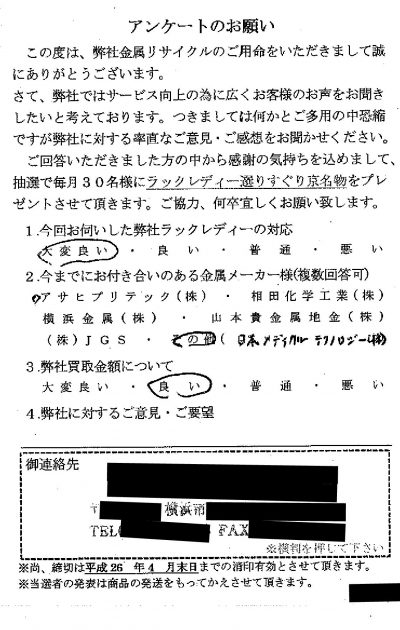 アンケートのお願い
この度は、弊社金属リサイクルのご用命をいただきまして誠
にありがとうございます。
さて、弊社ではサービス向上の為に広くお客様のお声をお聞き
したいと考えております。つきましては何かとご多用の中恐縮
ですが弊社に対する率直なご意見・ご感想をお聞かせください。
ご回答いただきました方の中から感謝の気持ちを込めまして、
抽選で毎月30名様にラックレディー選りすぐり京名物をプレ
ゼントさせて頂きます。ご協力、何卒宜しくお願い致します。
1.今回お伺いした弊社ラックレディーの対応
大変良い ・ 良い ・ 普通 ・ 悪い
2.今までにお付き合いのある金属メーカー様(複数回答可)
アサヒプリテック(株) ・ 相田化学工業(株)
横浜金属(株) ・ 山本貴金属地金(株)
(株)JGS ・ その他( 日本メディカルテクノロジー(株))
3.弊社買取金額について
大変良い ・ 良い ・ 普通 ・ 悪い
4.弊社に対するご意見・ご要望
御連絡先
〒 横浜市
TEL FAX
※横判を押して下さい
※尚、締切は平成26 年4 月末日までの消印有効とさせて頂きます。
※当選者の発表は商品の発送をもってかえさせて頂きます。